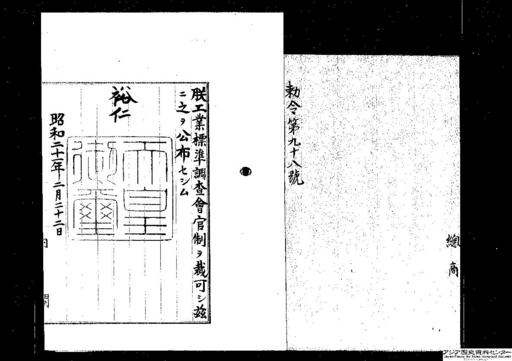 勅令第九十八號
總
商
朕工業標準調査會官制ヲ裁可シ茲
ニ之ヲ公布セシム
裕仁
天皇
御璽
昭和二十一年二月二十二日
内
閣
アジア歴史資料センター